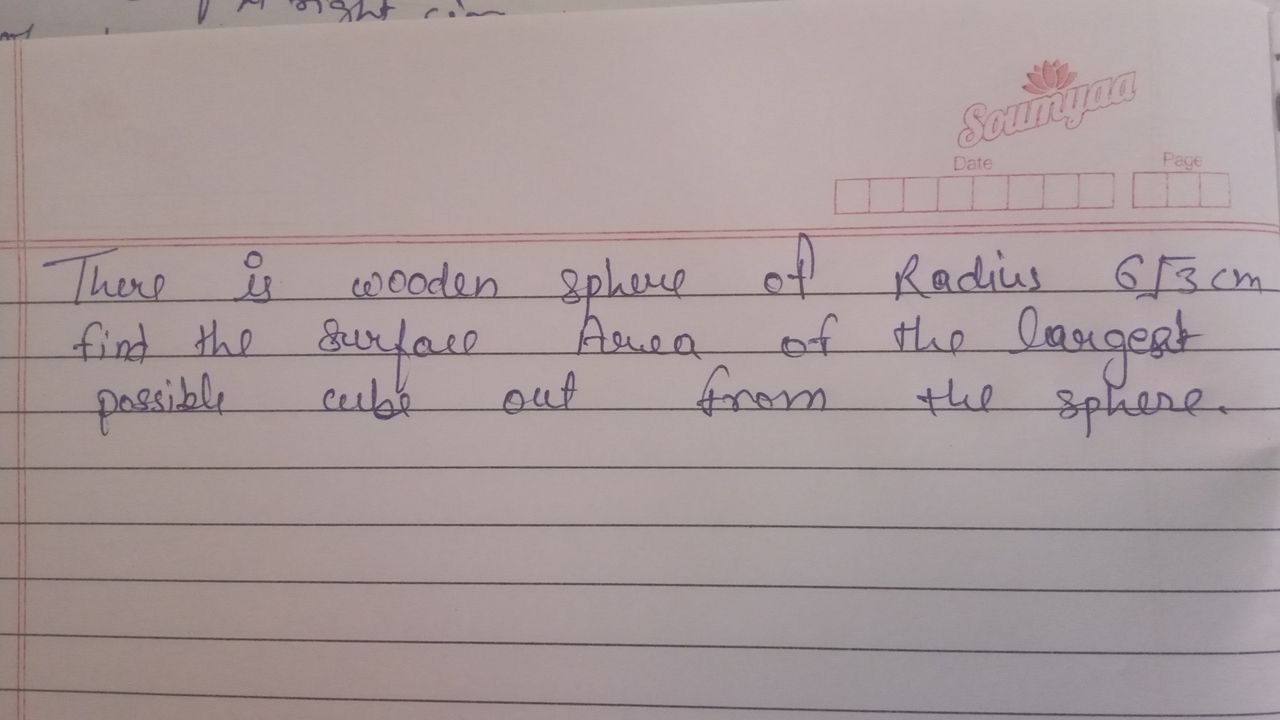 right
Soumyaa
Date Page
There is wooden sphere of Radius 6√3 cm
find the surface Area of the largest
possible cube out from the sphere.